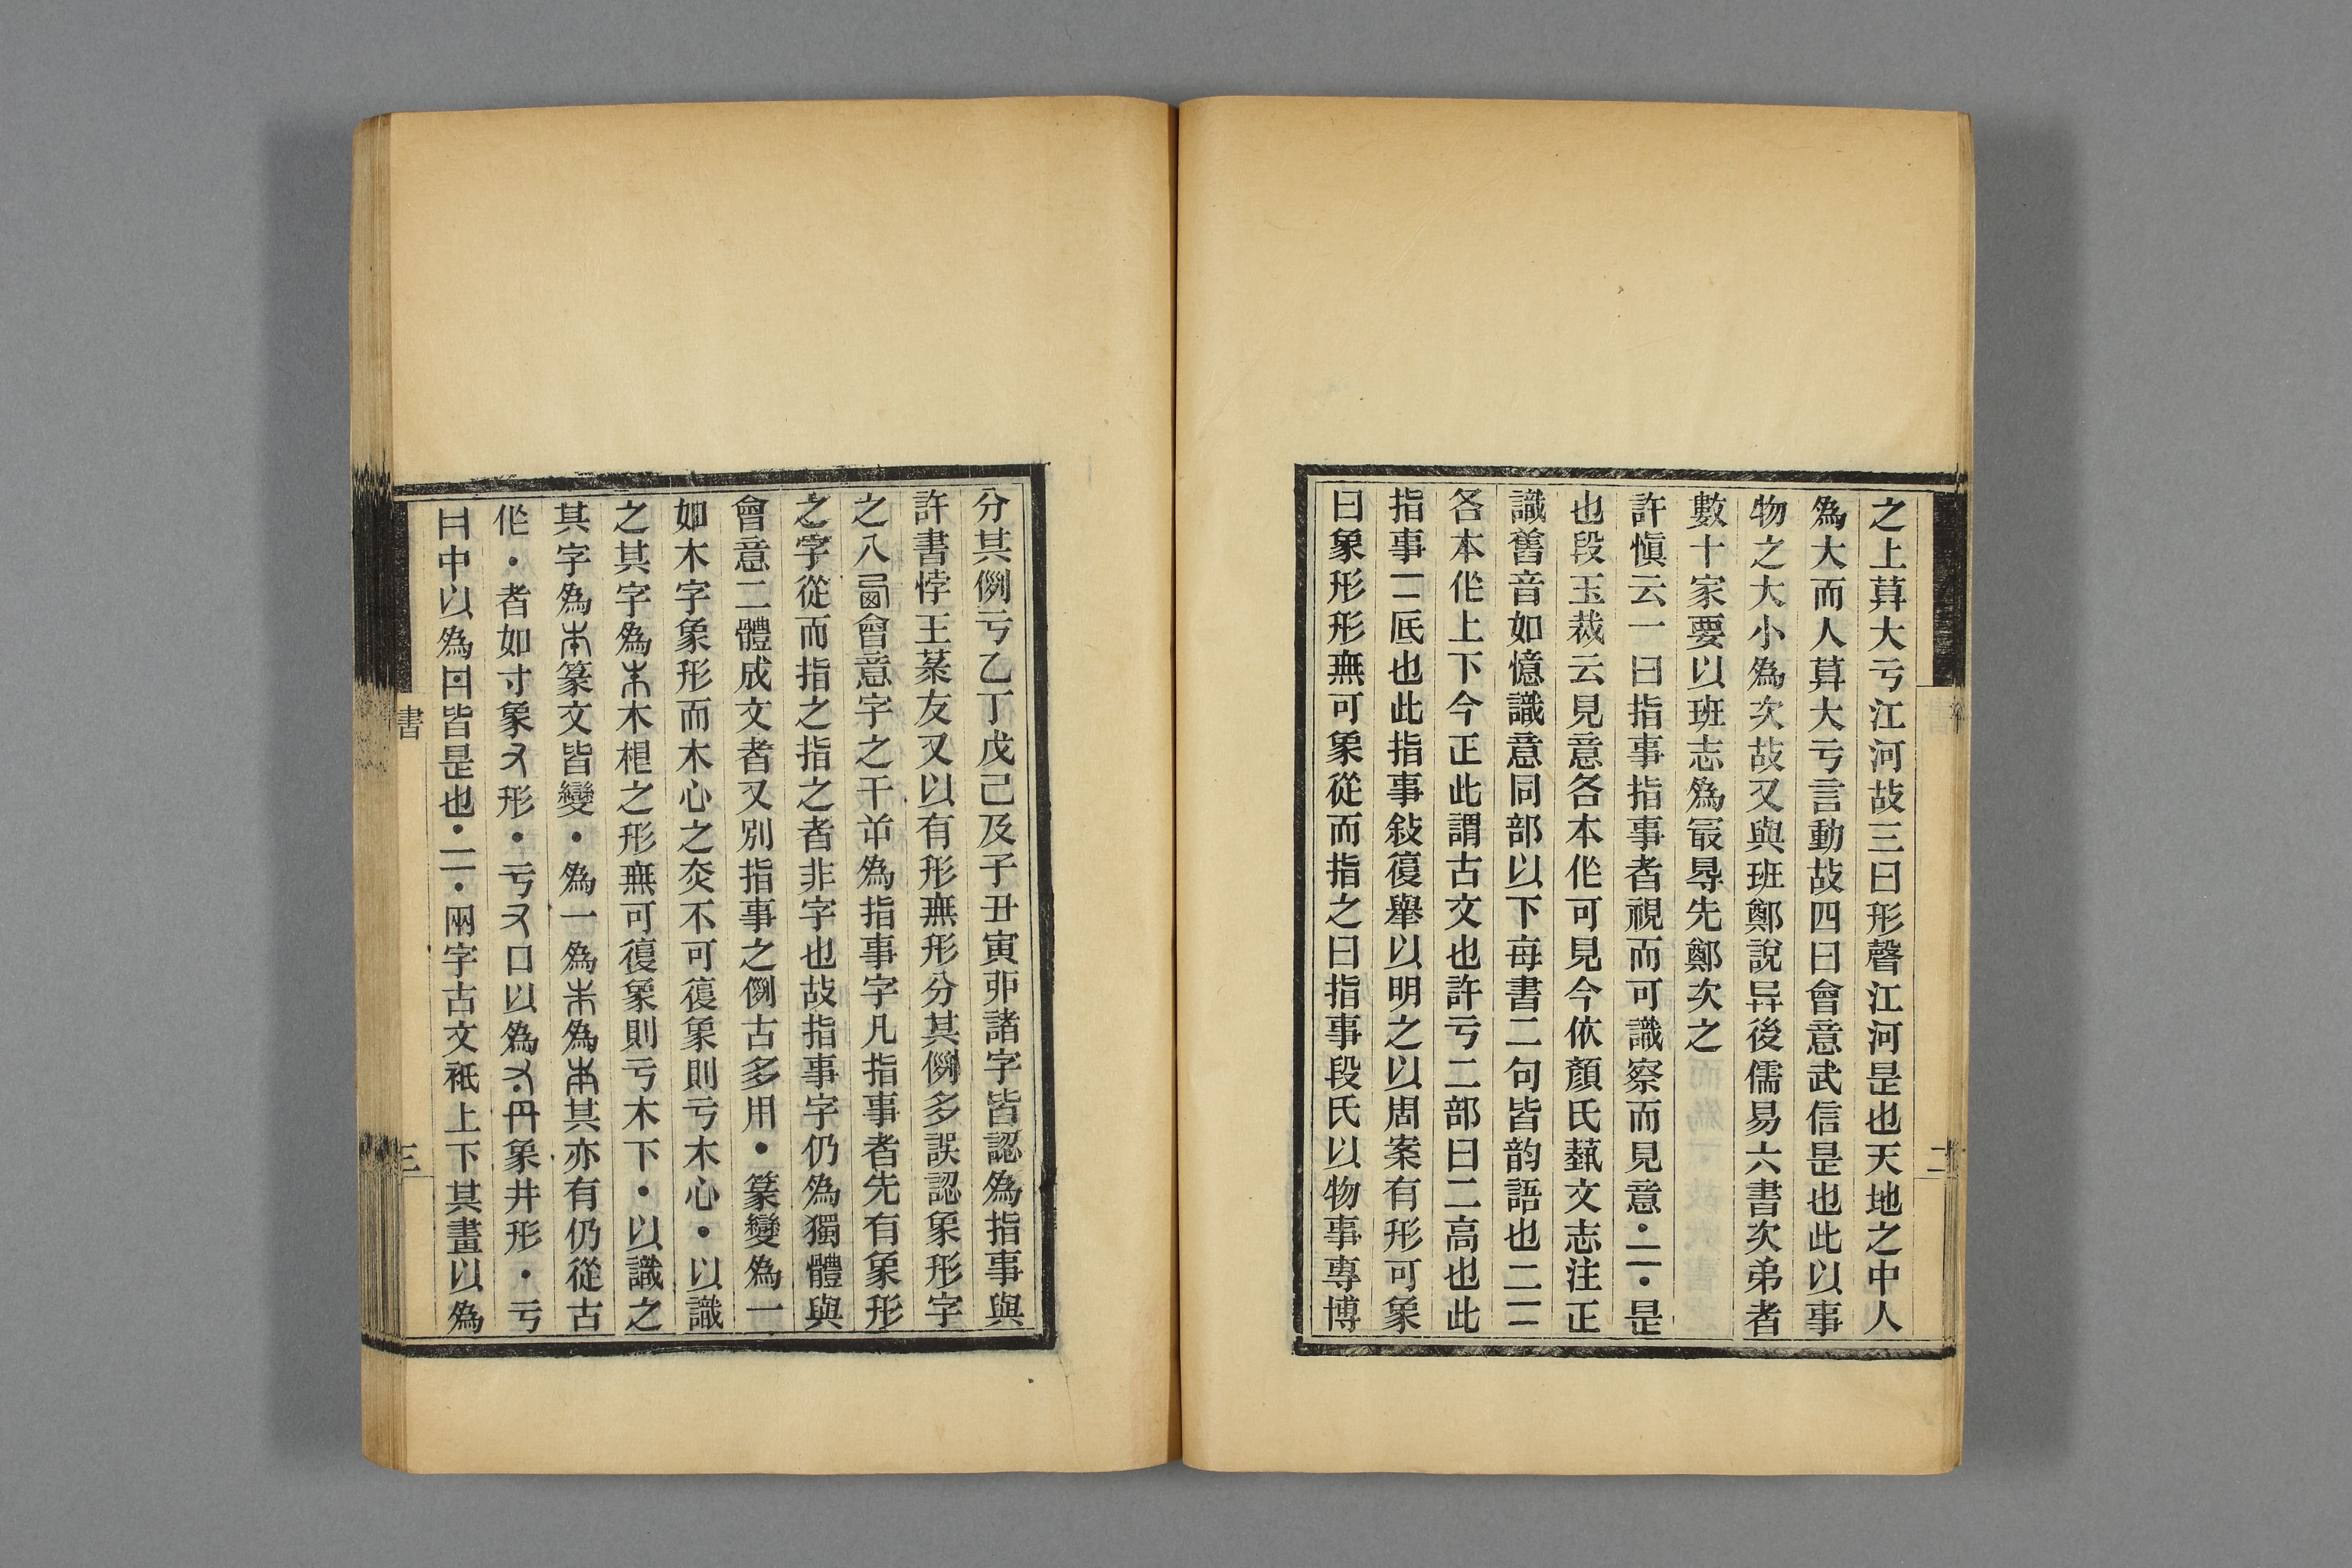 之上莫大亏江河故三曰形聲江河是也天地之中人
爲大而人莫大亏言動故四曰會意武信是也此以事
物之大小爲次故又與班鄭說异後儒易六書次弟者
數十家要以班志爲冣㝵先鄭次之
許愼云一曰指事指事者視而可識察而見意𠄞𠄟是
也段玉裁云見意各本作可見今依顏氏藝文志注正
識舊音如憶識意同部以下每書二句皆韵語也𠄞𠄟
各本作上下今正此謂古文也許亏二部曰二高也此
指事𠄟底也此指事敍復舉以明之以周案有形可象
曰象形形無可象從而指之曰指事段氏以物事專博
分其例亏乙丁戊己及子丑寅丣諸字皆認爲指事與
許書悖王菉友又以有形無形分其例多誤認象形字
之八會意字之干爲指事字凡指事者先有象形
之字從而指之指之者非字也故指事字仍爲獨體與
會意二體成文者又別指事之例古多用・篆變爲一
如木字象形而木心之不可復象則亏木心・以識
之其字爲木根之形無可復象則亏木下・以識之
其字爲篆文皆變・爲一爲爲其亦有仍從古
作・者如寸象又形・亏又口以爲丹象井形・亏
曰中以爲皆是也兩字古文祇上下其畫以爲
書
三
二